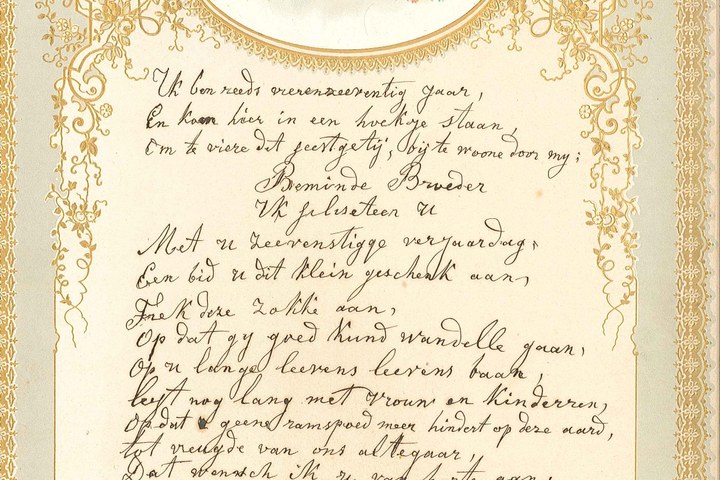 Ik ben reeds vierenzeeventig jaar,
En kom hier in een hoekje staan,
Om te viere dit feestgetij, bij te woone door mij;
Beminde Broeder
Ik feliseteer U
Met u zeevenstigge verjaardag,
Een bid u dit klein geschenk aan,
Trek deze zokke aan,
Op dat gy goed kund wandelle gaan,
Op u lange leevens leevens baan,
leeft nog lang met vrouw en kinderren,
Opdat geene ramspoed meer hindert op deze aard,
tot vreugde van ons altegaar,
Dat wensch ik u van harte aan;